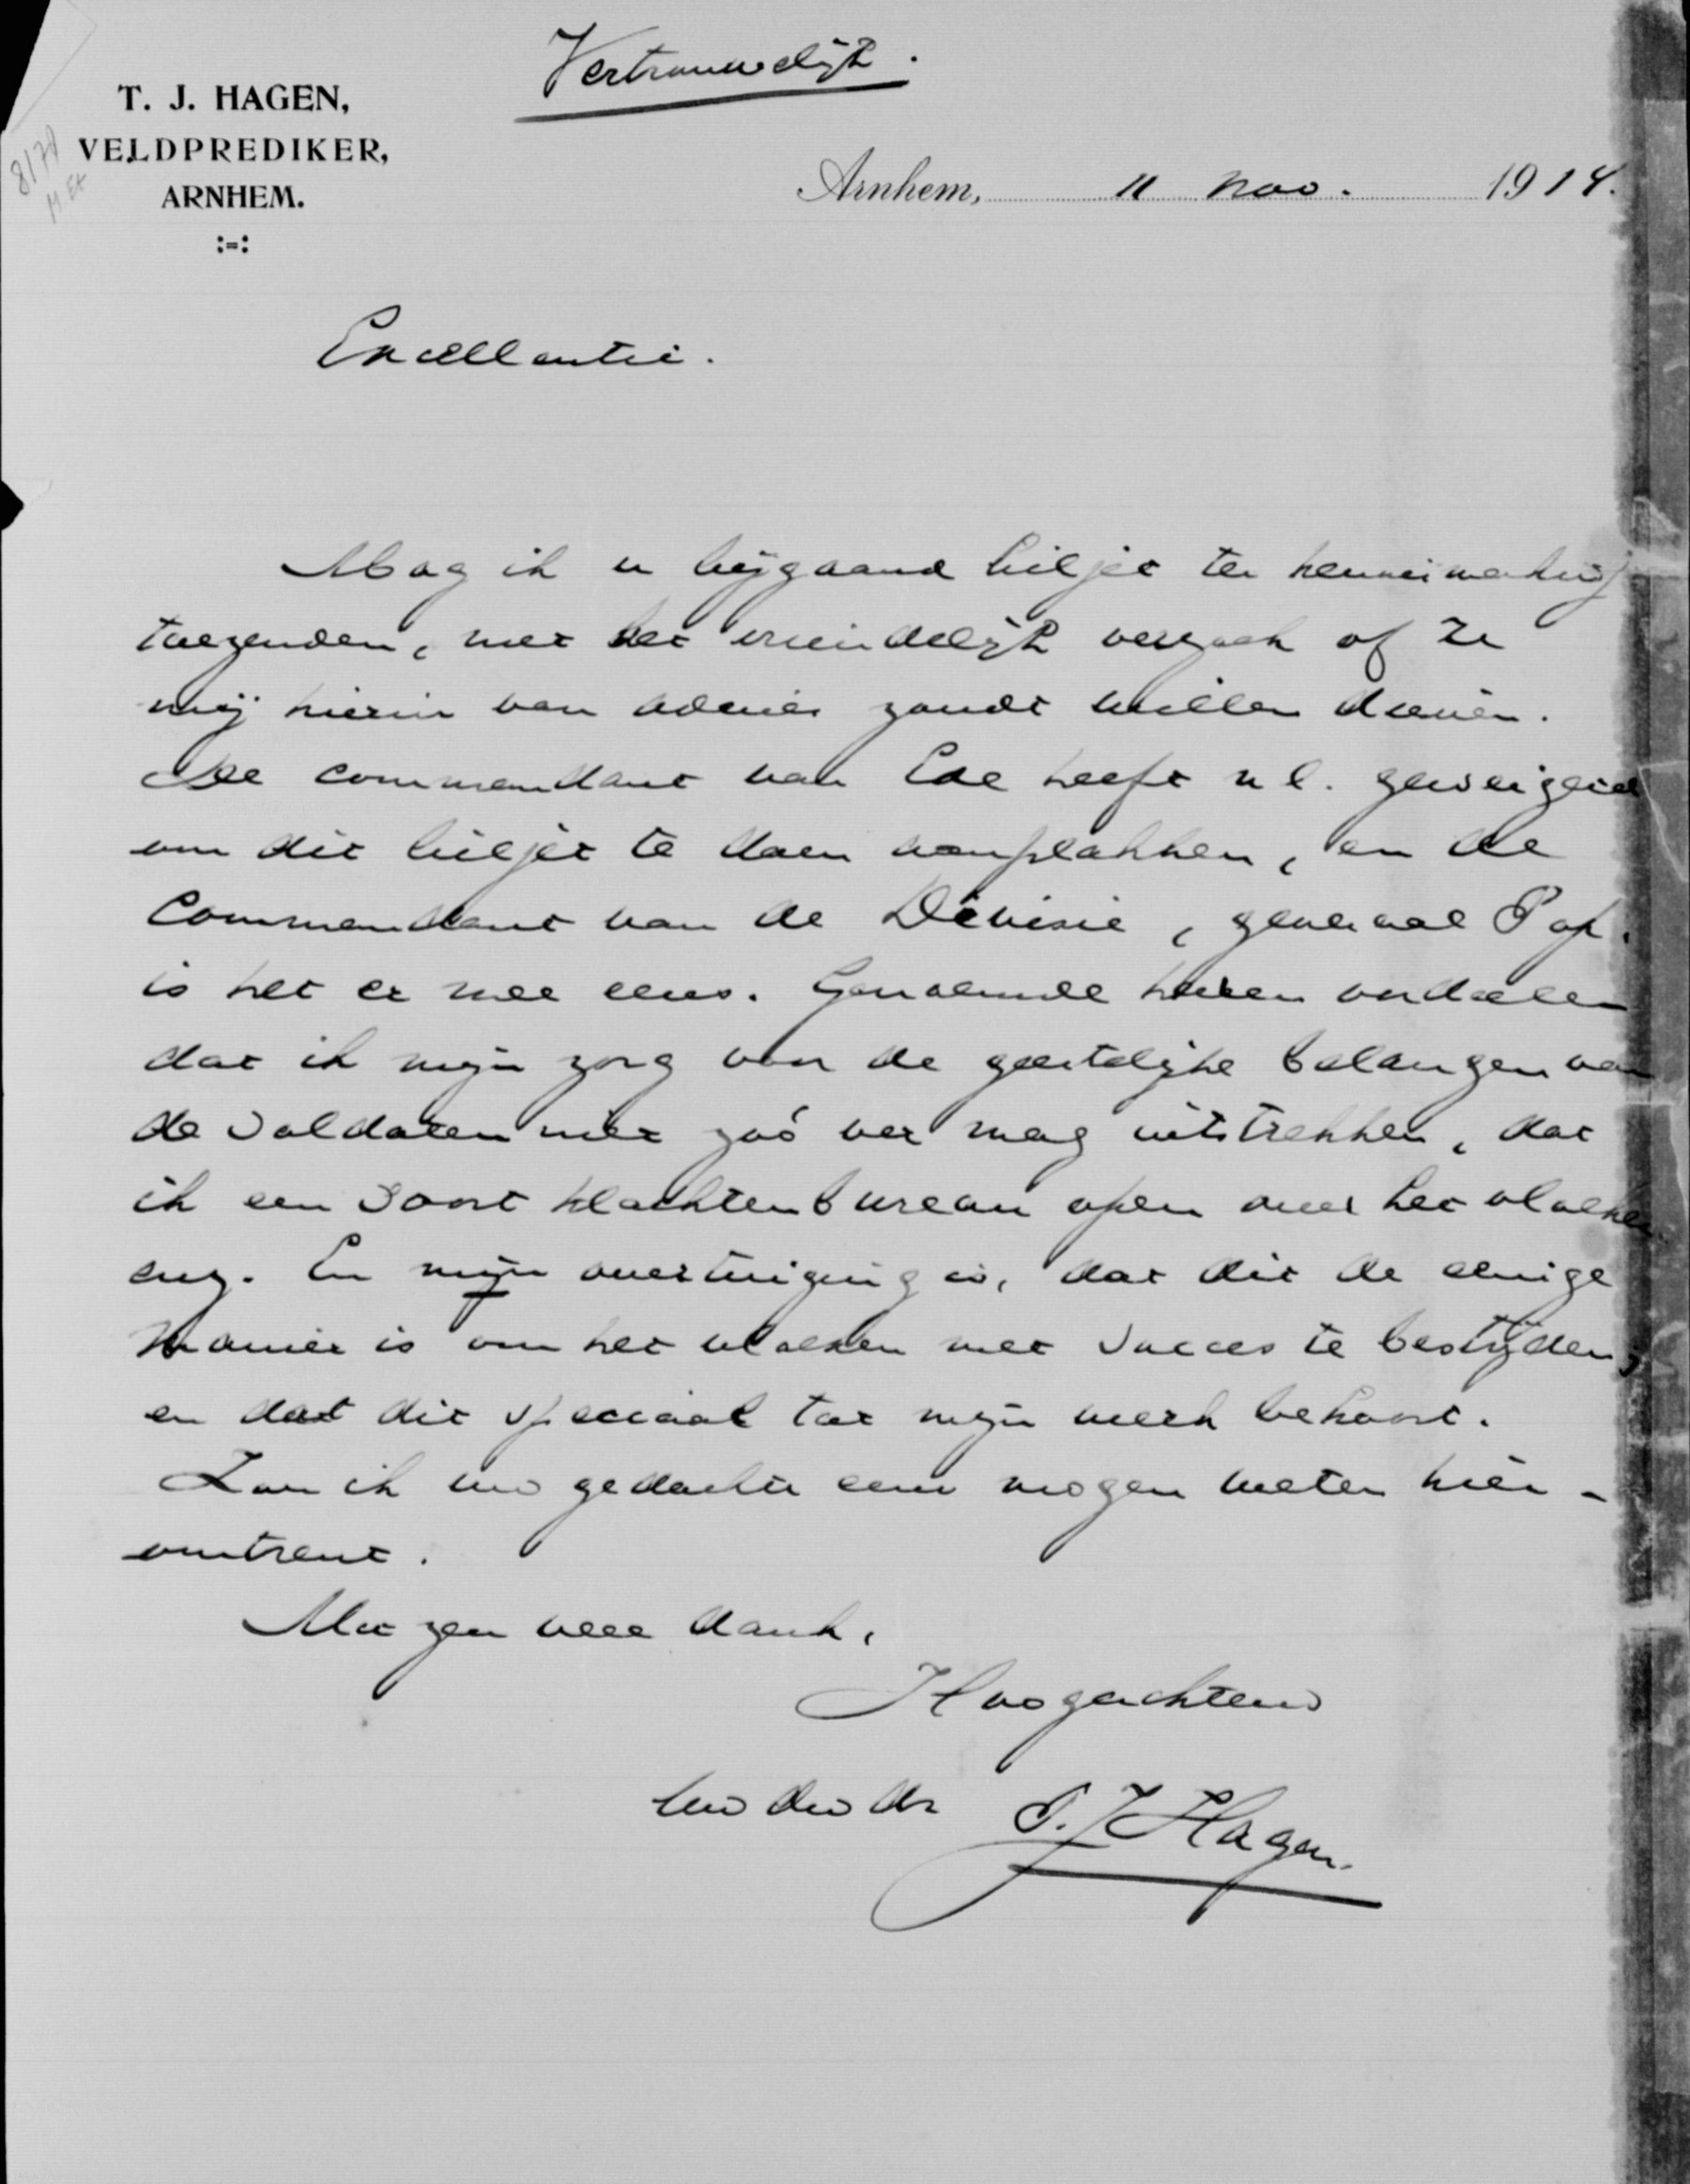 Vertrouwelijk.
T. J. HAGEN,
VELDPREDIKER,
ARNHEM.
:-:
Arnhem, 11 Nov. 1914.
Excellentie.
Mag ik u bijgaand biljet ter kennismaking
toezenden, met het vriendelijk verzoek of U
mij hierin van advies zoudt willen dienen.
De commandant van Ede heeft n l. geweigerd
om dit biljet te doen aanplakken, en de
Commandant van de Divisie, generaal Pop.
is het er mee eens. Genoemde heeren oordeelen
dat ik mijn zorg voor de geestelijke belangen van
de soldaten niet zoó ver mag uitstrekken, dat
ik een soort klachtenbureau open over het vloeken
enz. En mijn overtuiging is, dat dit de eenige
manier is om het vloeken met succes te bestrijden,
en dat dit speciaal tot mijn werk behoort.
Zou ik uw gedachte eens mogen weten hier-
omtrent.
Met zeer veel dank,
Hoogachtend
Uw dw dr T. J Hagen.